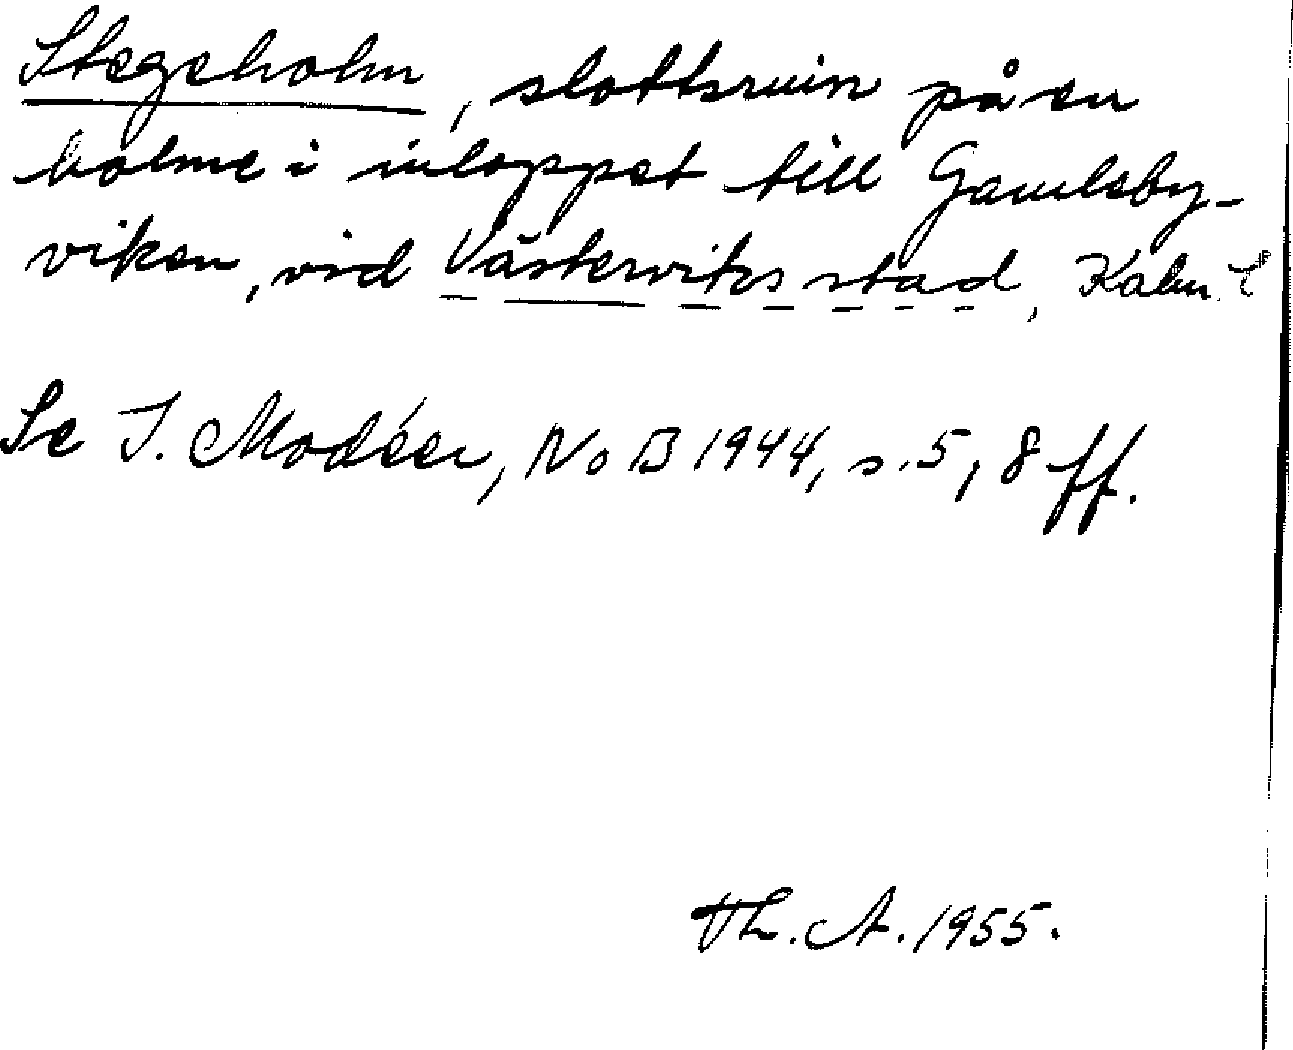 Stegeholm, slottsruin på en
holme i inloppet till Gamleby-
viken, vid Västerviks stad, Kalm. L
Se I. Modéer, NoB 1944, s. 5, 8 ff.
Th. A. 1955.